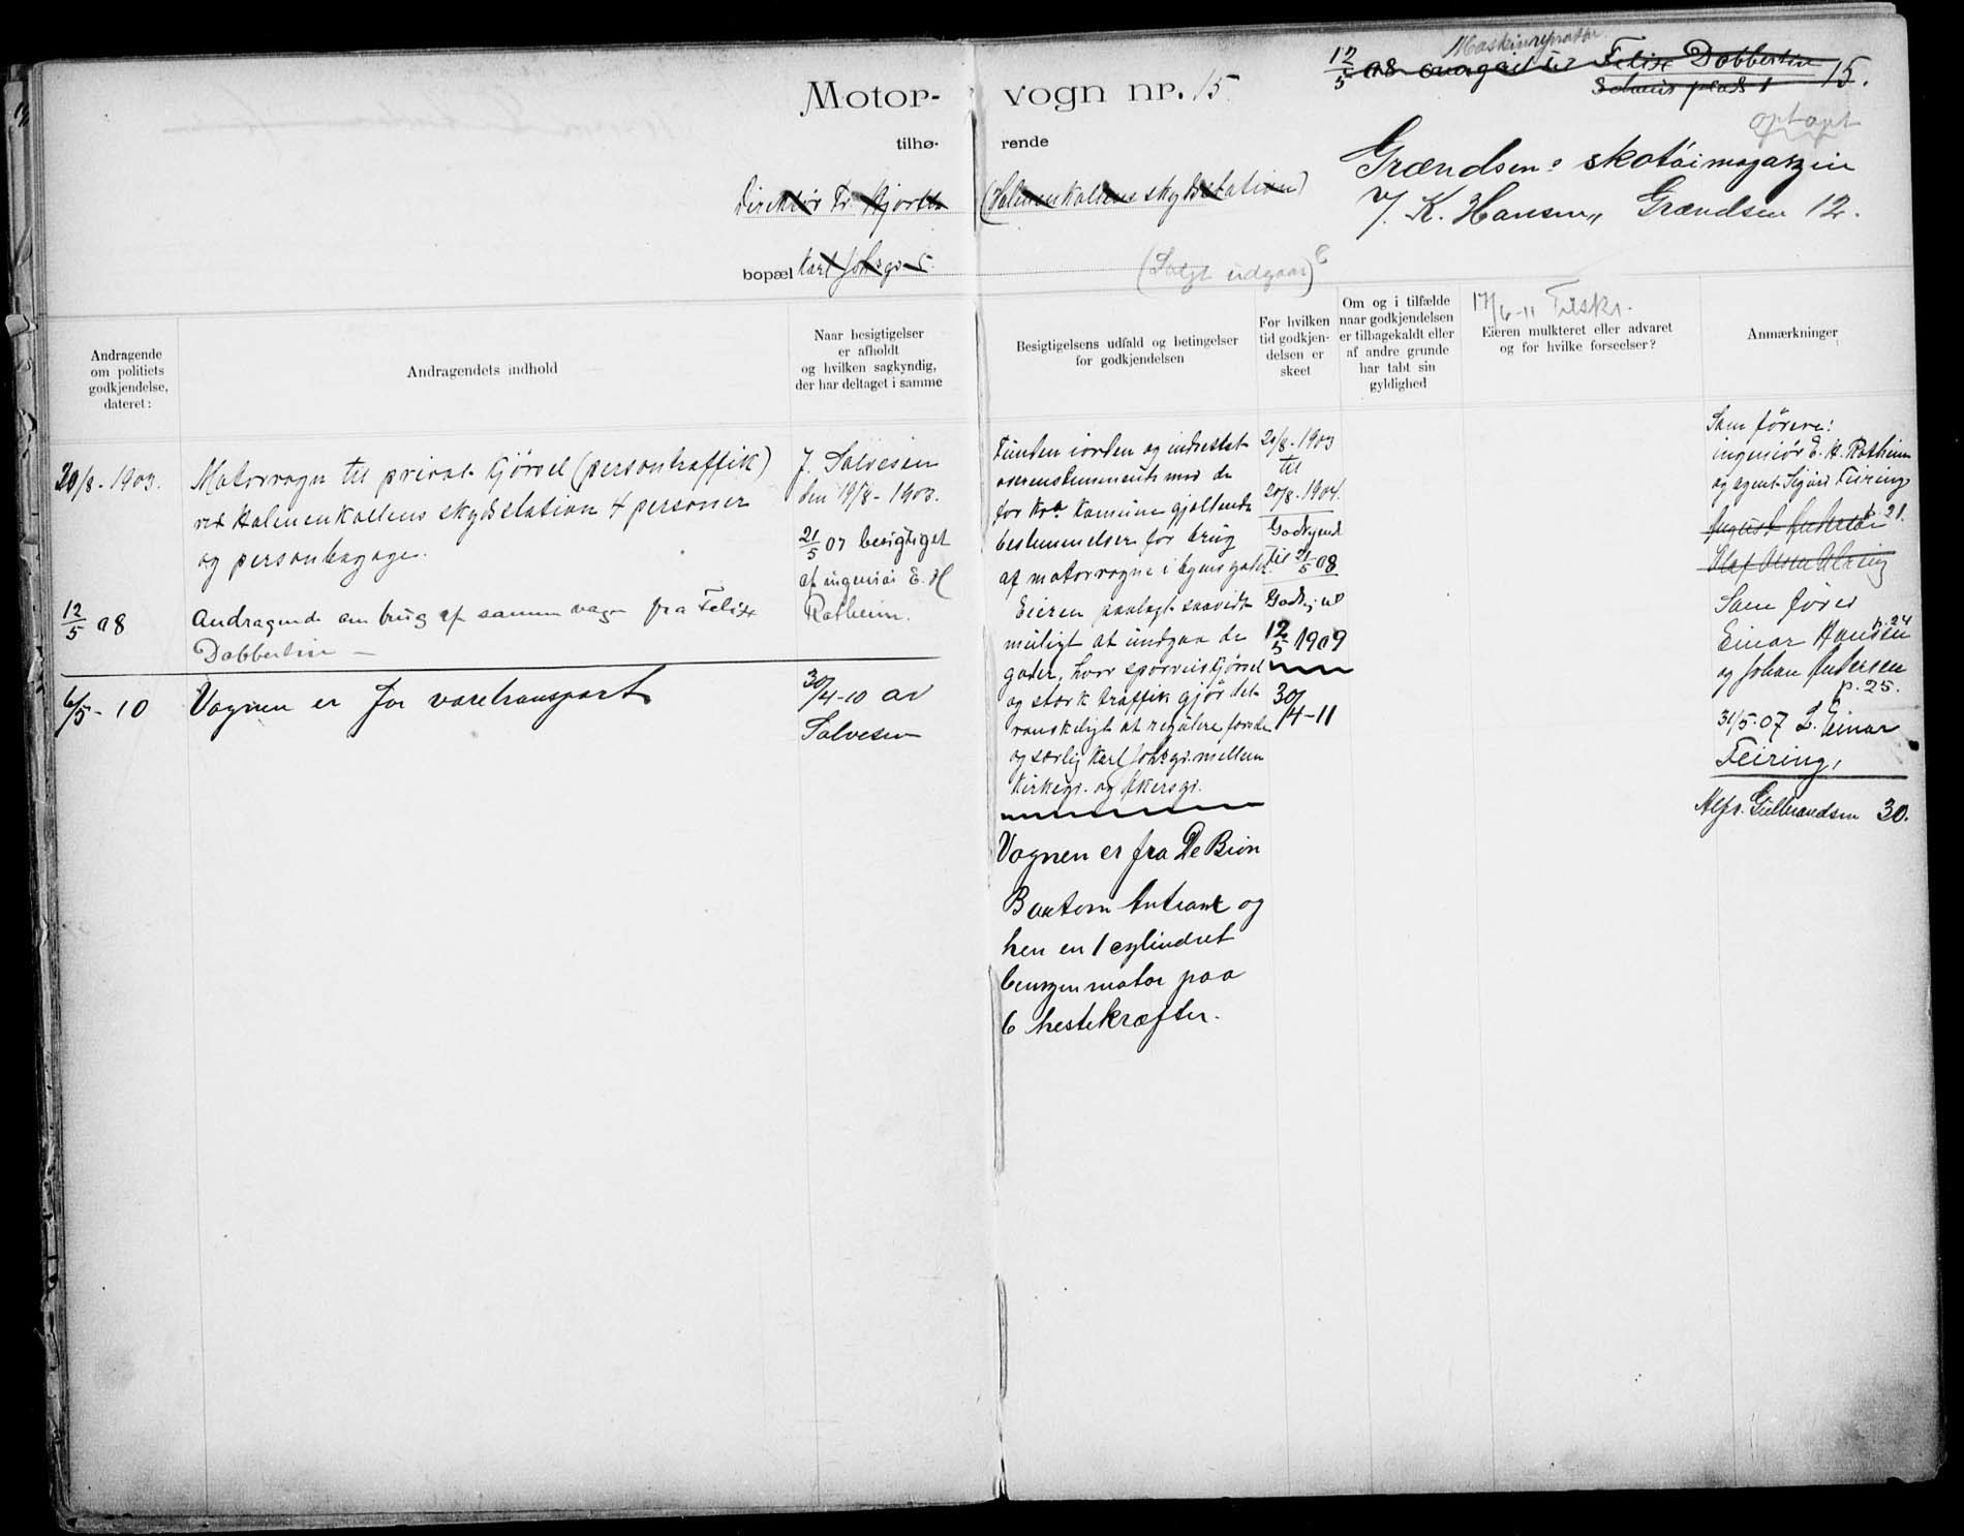 Motor-vogn nr. 15
tilhørende
Direktør Fr. Hjorth (Holmenkollens skydsstation)
bopæl Karl Johsgd 5.
(Solgt udgaar)
Maskinreparatør
12/5 08 overgaait til Felix Dobbertin
Schous plads 1
15.
optapt
Grændsens skotøimagazin
J. K. Hansen, Grændsen 12.
17/6-11 Tilskr.
Andragende
om politiets
godkjendelse,
dateret:
Andragendets indhold
Naar besigtigelser
er afholdt
og hvilken sagkyndig,
der har deltaget i samme
Besigtigelsens udfald og betingelser
for godkjendelsen
For hvilken
tid godkjen-
delsen er
skeet
Om og i tilfælde
naar godkjendelsen
er tilbagekaldt eller
af andre grunde
har tabt sin
gyldighed
Eieren mulkteret eller advaret
og for hvilke forseelser?
Anmærkninger
20/8-1903.
Motorvogn til privat kjørsel (persontraffik)
ved Holmenkollens skydsstation 4 personer
og personbagage.
12/5 08
Andragende om brug af samme vogn fra Felix
Dobbertin —
6/5-10
Vognen er for varetransport
J. Salvesen
den 19/8-1903.
21/5 07 besigtiget
af ingeniør E. H
Rotheim.
30/4-10 av
Salvesen
Funden iorden og indrettet
overenstemmende med de
for Kra kommune gjældende
bestemmelser for brug
af motorvogne i byens gader.
Eieren paalagt saavidt
muligt at undgaa de
gader, hvor sporveiskjørsel
og stærk traffik gjør det
vanskeligt at regulere farten
og særlig Karl Johsgd. mellem
Kirkegd. og Akersgd.
Vognen er fra De Dion
Boutom og
hen en 1 cylindret
benzinmotor paa
6 hestekræfter.
20/8-1903
til
20/8-1904.
Godkjendt
til 21/5 08
Godkj til
12/5 1909
30/4-11
Som førere:
ingeniør E. H. Rotheim
og agent Sigurd Feiring
p. 21.
August Andersen
Olaf Olsen
Som fører
Einar Hansen p. 24
og Johan Andersen
p. 25.
31/5.07 L. Einar
Feiring,
Alfr. Gulbrandsen 30.